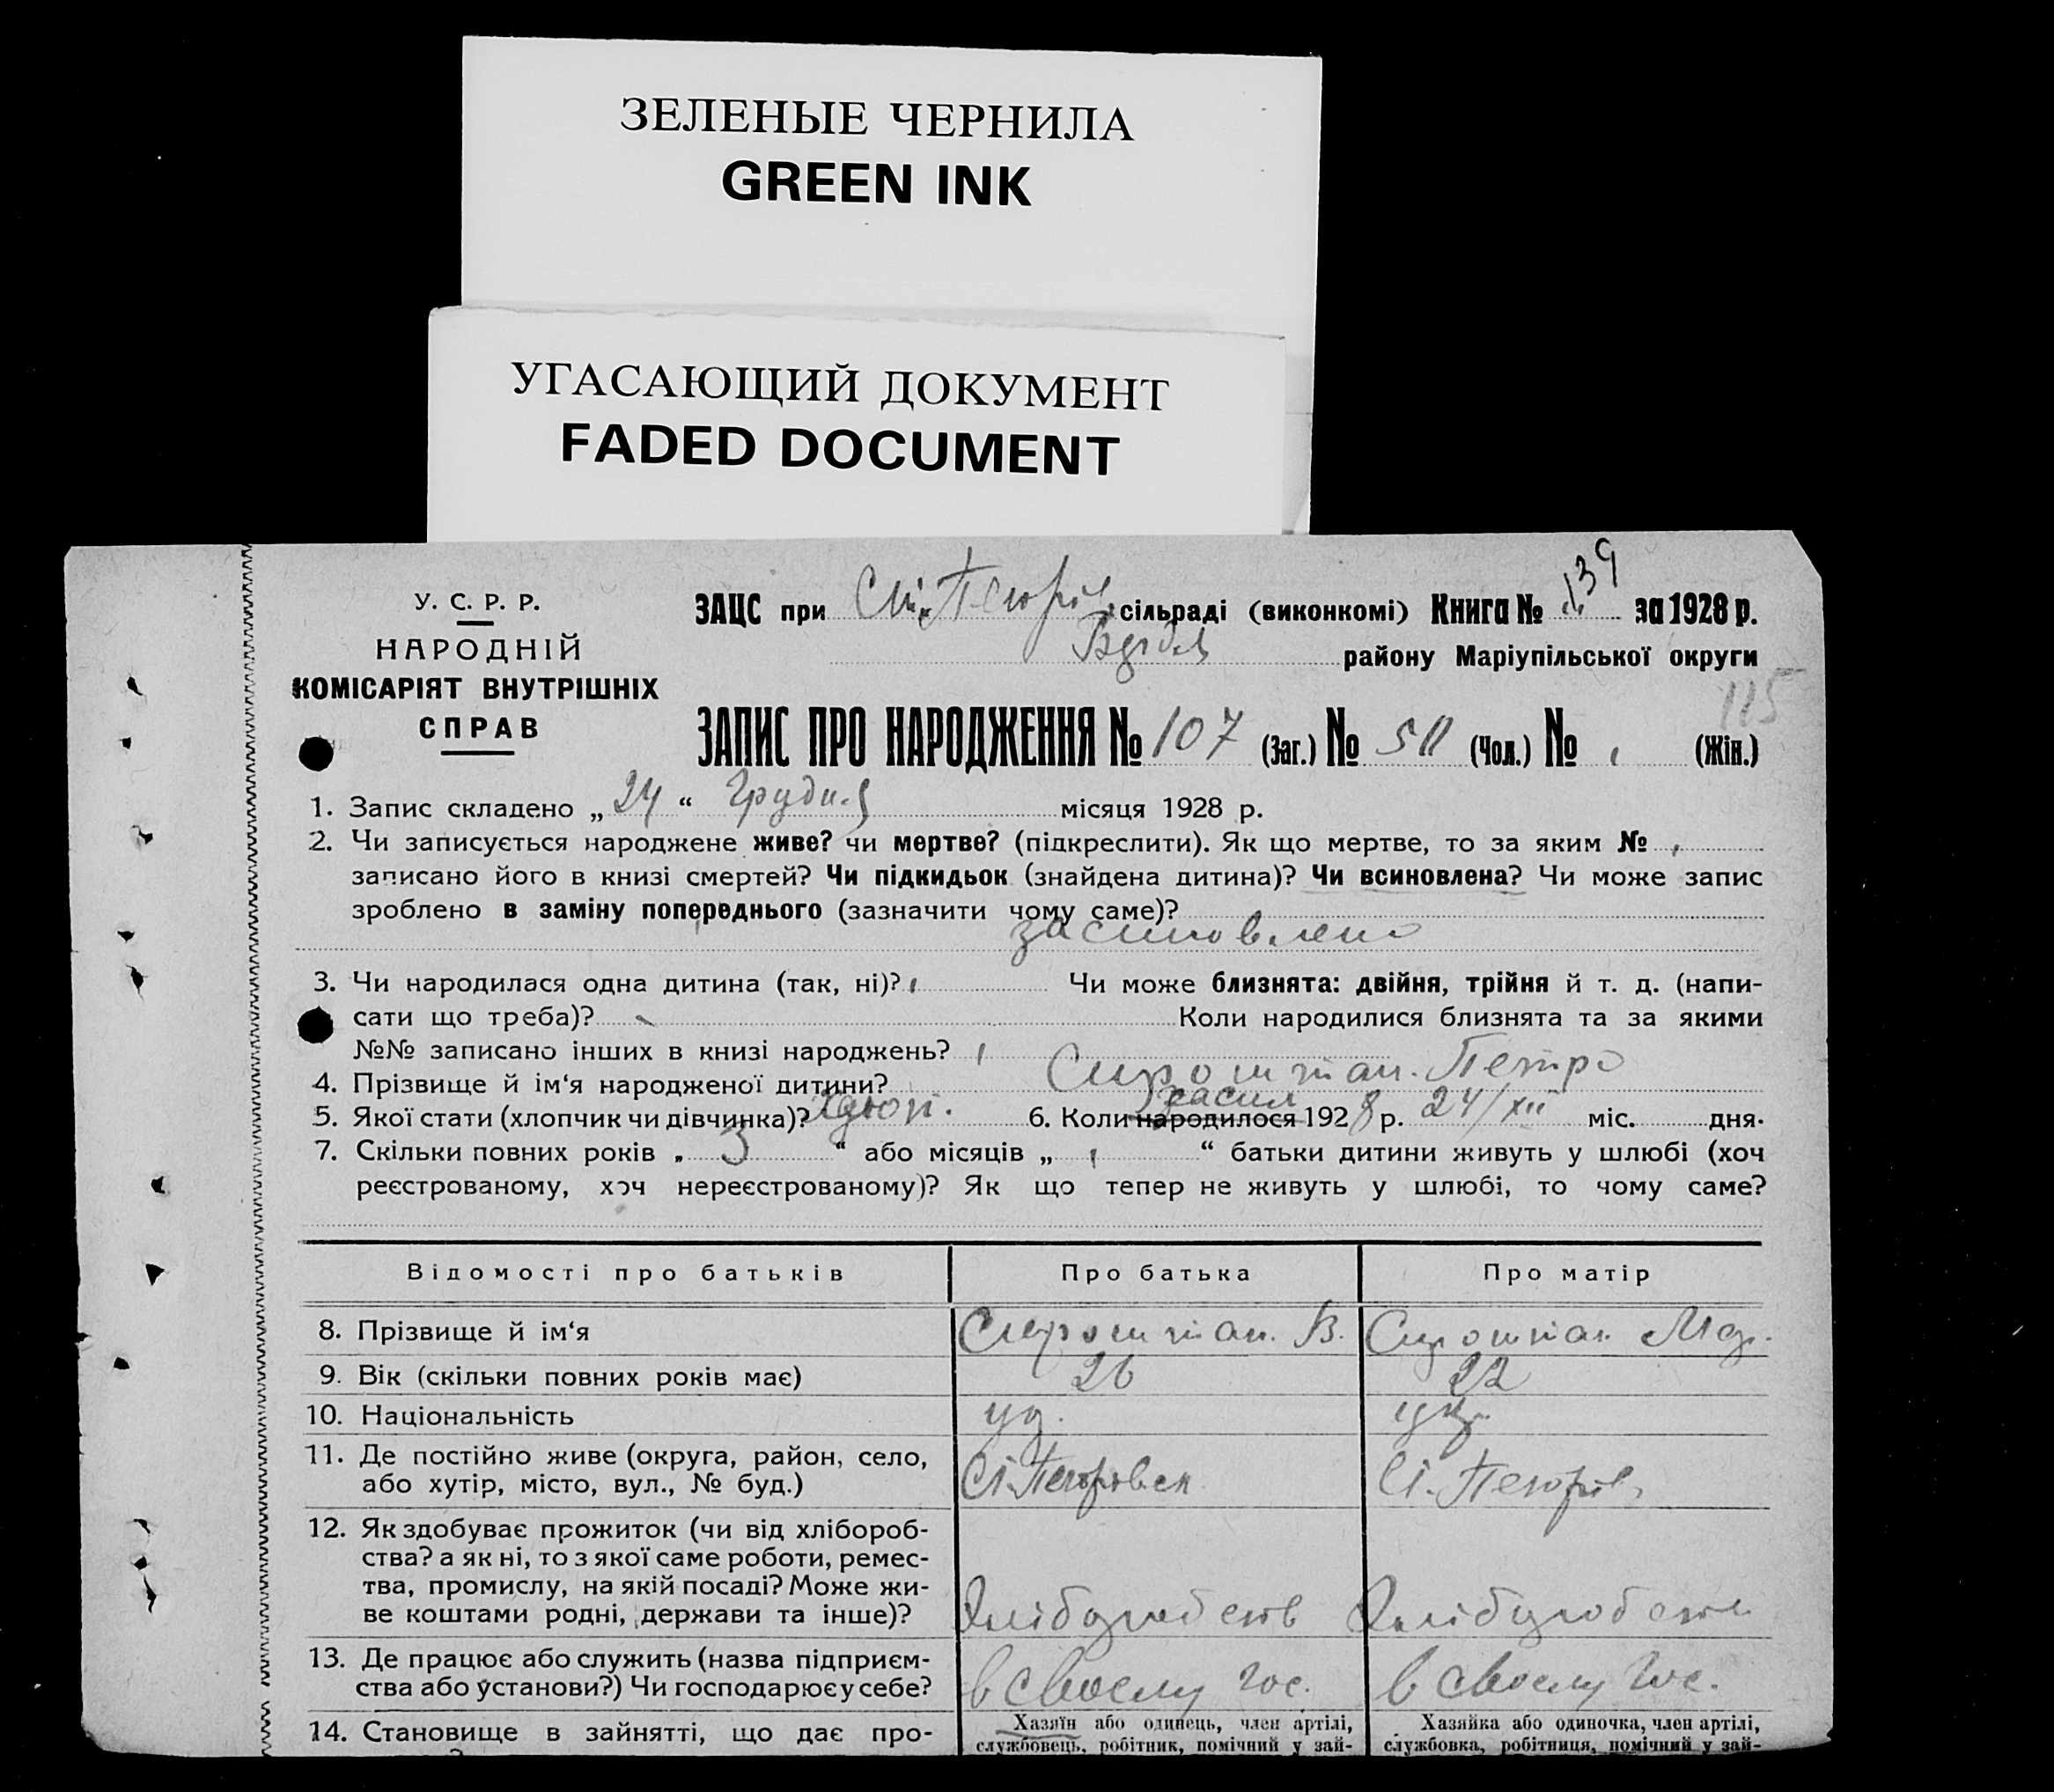 ЗЕЛЕНЫЕ ЧЕРНИЛА
GREEN INK
УГАСАЮЩИЙ ДОКУМЕНТ
FADED DOCUMENT
У. С. Р. Р.
НАРОДНІЙ
КОМІСАРІЯТ ВНУТРІШНІХ
СПРАВ
139
ЗАЦС при сільраді (виконкомі) Книга № за 1928 р.
району Маріупільської округи
115
ЗАПИС ПРО НАРОДЖЕННЯ № 107 (Заг.) № (Чол.) № (Жін.)
1. Запис складено „ 24 “ Грудня місяця 1928 р.
2. Чи записується народжене живе? чи мертве? (підкреслити). Як що мертве, то за яким №
записано його в книзі смертей? Чи підкидьок (знайдена дитина)? Чи всиновлена? Чи може запис
зроблено в заміну попереднього (зазначити чому саме)?
засиновлено
3. Чи народилася одна дитина (так, ні)? Чи може близнята: двійня, трійня й т. д. (напи-
сати що треба)? Коли народилися близнята та за якими
№№ записано інших в книзі народжень?
4. Прізвище й ім‘я народженої дитини? Сироштан. Петро
5. Якої стати (хлопчик чи дівчинка)? хлоп. 6. Коли народилося 1928 р. 24/XII міс. дня.
7. Скільки повних років „ 3 “ або місяців „ “ батьки дитини живуть у шлюбі (хоч
реєстрованому, хоч нереєстрованому)? Як що тепер не живуть у шлюбі, то чому саме?
Відомості про батьків Про батька Про матір
8. Прізвище й ім‘я Сироштан. В. Сироштан
9. Вік (скільки повних років має) 26 22
10. Національність укр.
11. Де постійно живе (округа, район, село,
або хутір, місто, вул., № буд.)
12. Як здобуває прожиток (чи від хлібороб-
ства? а як ні, то з якої саме роботи, ремес-
тва, промислу, на якій посаді? Може жи-
ве коштами родні, держави та інше)? Хліборобств Хліборобств
13. Де працює або служить (назва підприєм-
ства або установи?) Чи господарює у себе? в своєму гос. в своєму гос.
14. Становище в зайнятті, що дає про-
Хазяїн або одинець, член артілі,
службовець, робітник, помічний у зай-
Хазяйка або одиночка, член артілі,
службовка, робітниця, помічний у зай-